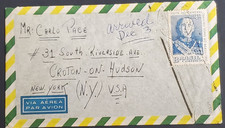 Mr: Carlo Page
arrived
Dec. 3
# 31 South, Riverside Ave
Croton-on-Hudson
New York (N.Y.) USA
VIA AEREA
PAR AVION